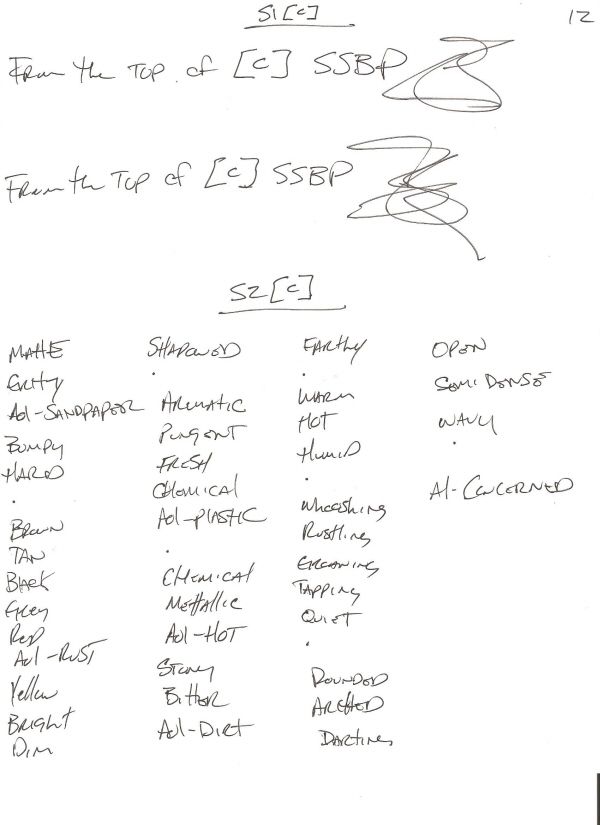 S1 [c]
12
From the TOP of [c] SSBP
From the TOP of [c] SSBP
S2 [c]
MATTE
Gritty
Aol-SANDPAPER
BUMPY
HARD
.
BROWN
TAN
Black
Grey
Red
Aol-RUST
Yellow
BRIGHT
DIM
SHADOWED
.
AROMATIC
PUNGENT
FRESH
CHEMICAL
Aol-PLASTIC
.
CHEMICAL
METTALLIC
Aol-HOT
Stoney
BITTER
Aol-DIRT
EARTHY
.
WARM
HOT
HUMID
.
Whooshing
RUSTLING
GROANING
TAPPING
QUIET
.
ROUNDED
ARCHED
DARTING
OPEN
SEMI DENSE
WAVY
.
AI-CONCERNED